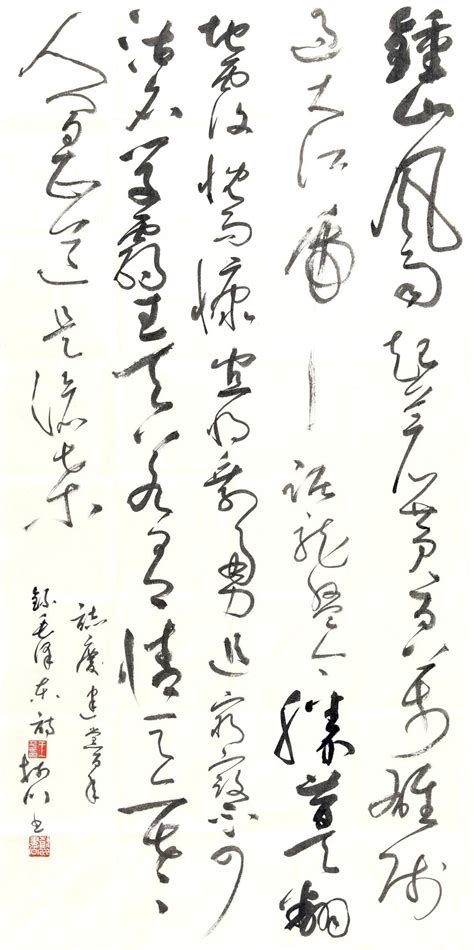 鍾山風雨起蒼黃百萬雄師
過大江虎踞龍盤今勝昔天翻
地覆慨而慷宜將剩勇追窮寇不可
沽名學霸王天若有情天亦老
人間正道是滄桑
誌慶建黨百年
錄毛澤東詩 書